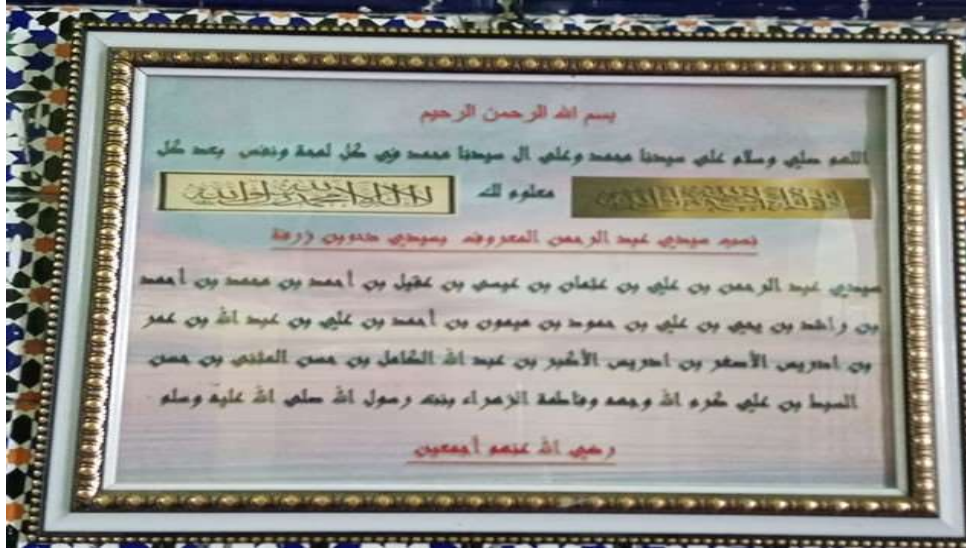 بسم الله الرحمن الرحيم
اللهم صلي وسلام على سيدنا محمد وعلى ال سيدنا محمد في كل لمحة ونفس بعد كل
معلوم لك
نسب سيدي عبد الرحمن المعروف بسيدي دحوبن زرفة
سيدي عبد الرحمن بن علي بن عثمان بن عيسى بن عقيل بن أحمد بن محمد بن أحمد
بن راشد بن يحيى بن علي بن حمود بن ميمون بن أحمد بن علي بن عبد الله بن عمر
بن ادريس الأصغر بن ادريس الأكبر بن عبد الله الكامل بن حسن المثنى بن حسن
السبط بن علي كرم الله وجهه وفاطمة الزهراء بنت رسول الله صلى الله عليه وسلم
رضي الله عنهم أجمعين